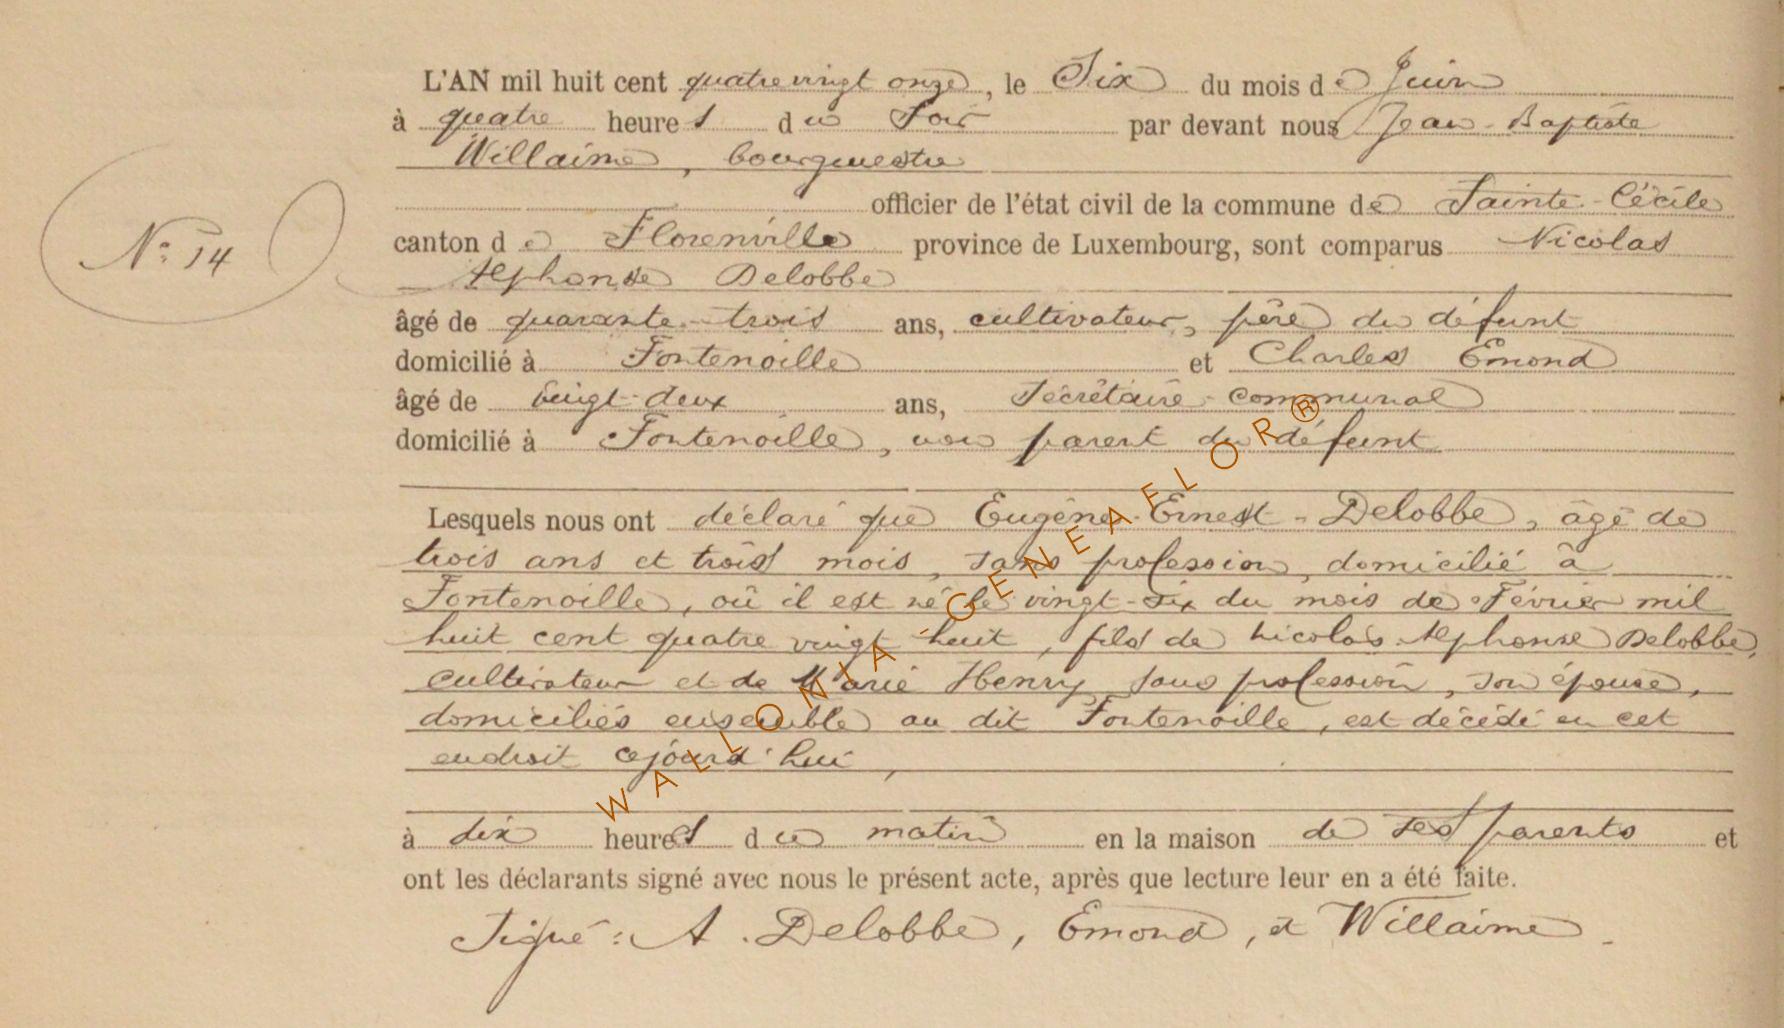 L'AN mil huit cent quatre vingt onze, le Six du mois de Juin
à quatre heures du Soir par devant nous Jean-Baptiste
Willaime, bourgmestre
officier de l'état civil de la commune de Sainte-Cécile
N° 14
canton de Florenville province de Luxembourg, sont comparus Nicolas
Alphonse Delobbe
âgé de quarante-trois ans, cultivateur, père du défunt
domicilié à Fontenoille et Charles Emond
âgé de vingt-deux ans, Secrétaire communal
domicilié à Fontenoille, non parent du défunt
Lesquels nous ont déclaré que Eugène-Ernest-Delobbe, âgé de
trois ans et trois mois, sans profession, domicilié à
Fontenoille, où il est né le vingt-six du mois de Février mil
huit cent quatre vingt huit, fils de Nicolas Alphonse Delobbe,
cultivateur et de Marie Henry sans profession, son épouse,
domiciliés ensemble au dit Fontenoille, est décédé en cet
endroit cejourd'hui,
à dix heures du matin en la maison de ses parents et
ont les déclarants signé avec nous le présent acte, après que lecture leur en a été faite.
Signé : A. Delobbe, Emond, et Willaime.
WALLONIA - GENEAFLOR®